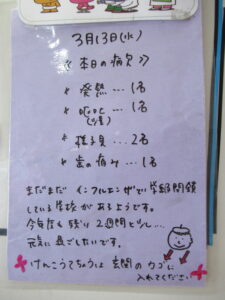 3月13日(水)
《本日の病欠》
* 発熱…1名
* 嘔吐…1名
* 様子見…2名
* 歯の痛み…1名
まだまだ インフルエンザで学級閉鎖
している学校が あるようです。
今年度も 残り 2週間と少し…
元気に 過ごしたいです。
けんこうてちょうは 玄関のカゴに
入れてください